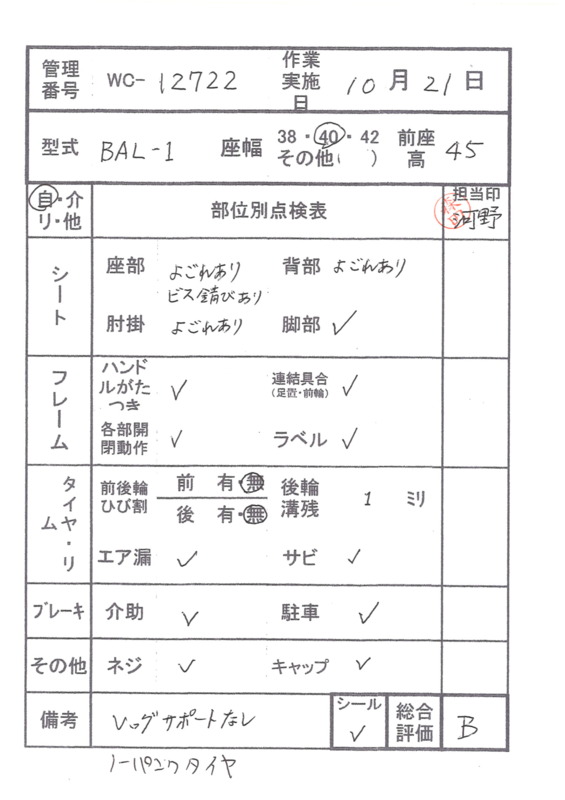 管理番号 WC-12722 作業実施日 10月21日
型式 BAL-1 座幅 38・40・42 その他( ) 前座高 45
自・介・リ・他 部位別点検表 担当印 河野
シート 座部 よごれあり ビス錆びあり 背部 よごれあり
肘掛 よごれあり 脚部 ✓
フレーム ハンドルがたつき ✓ 連結具合(足置・前輪) ✓
各部開閉動作 ✓ ラベル ✓
タイヤ・リム 前後輪ひび割 前 有・無 後輪溝残 1 ミリ
後 有・無
エア漏 ✓ サビ ✓
ブレーキ 介助 ✓ 駐車 ✓
その他 ネジ ✓ キャップ ✓
備考 レッグサポートなし シール ✓ 総合評価 B
ノーパンクタイヤ